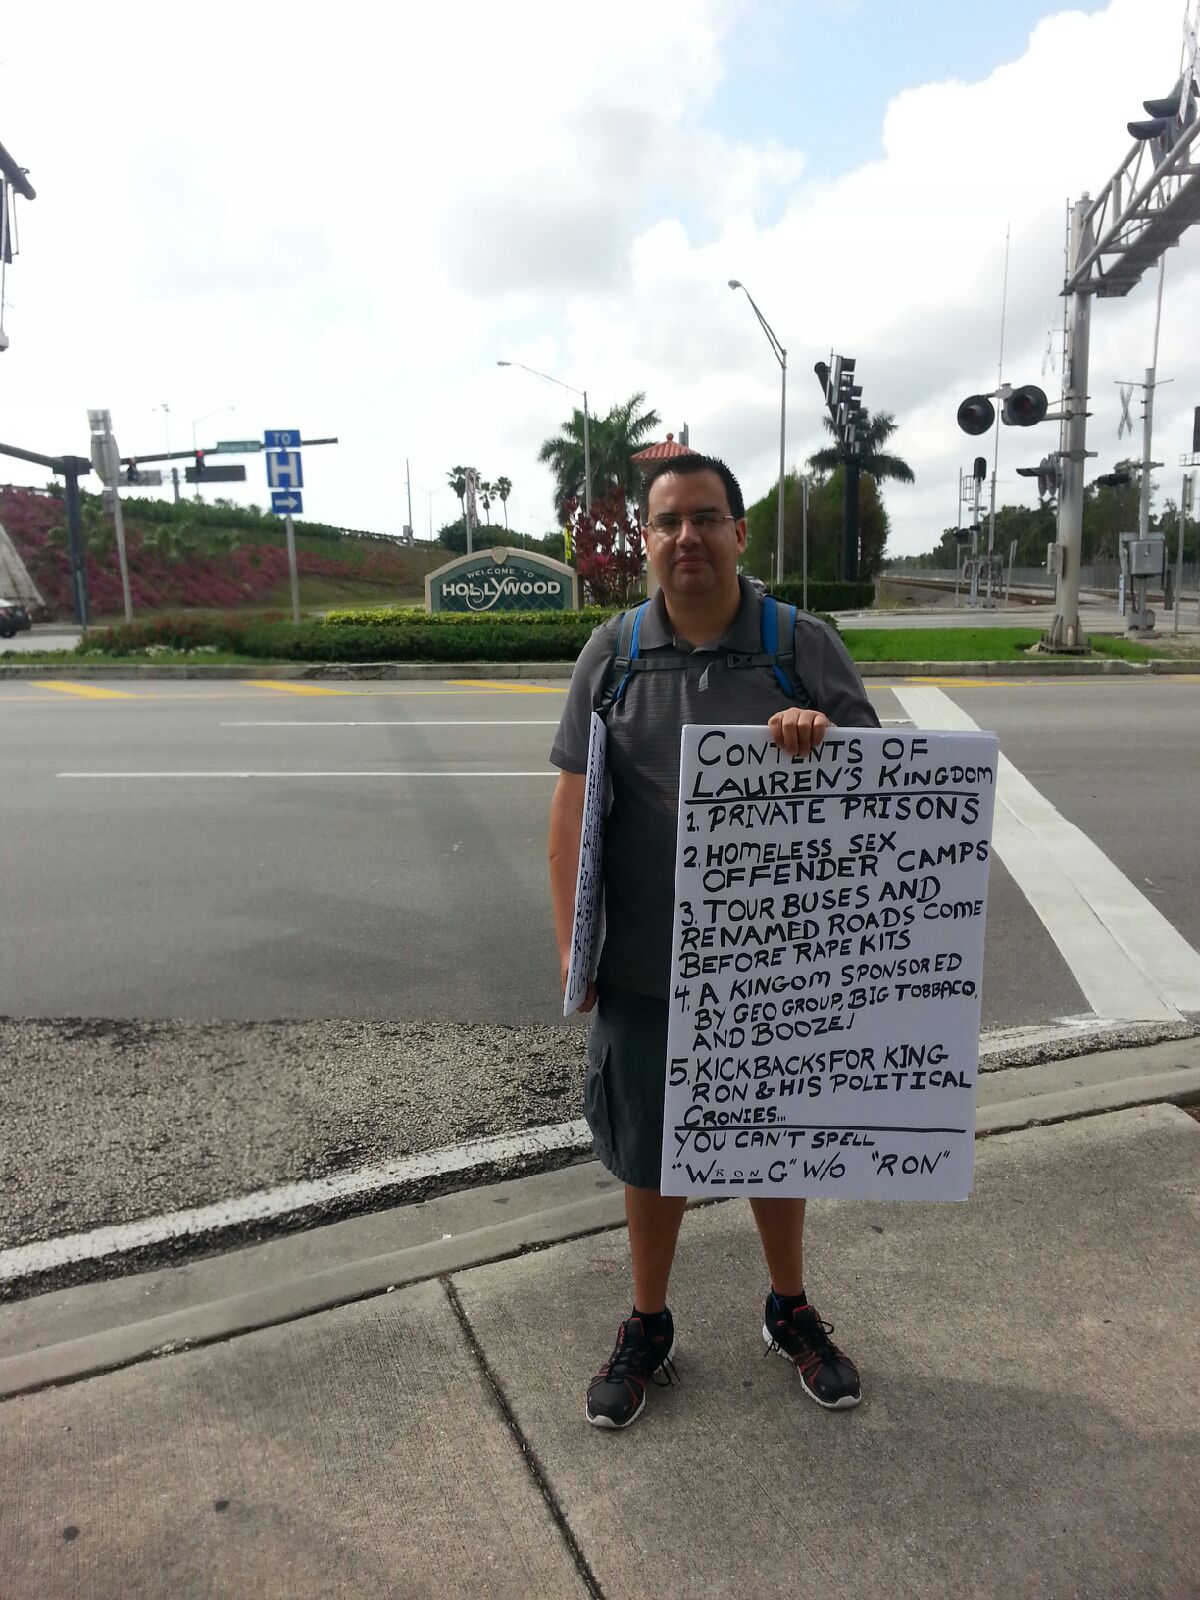 TO
H
WELCOME TO
HOLLYWOOD
CONTENTS OF
LAUREN'S KINGDOM
1. PRIVATE PRISONS
2. HOMELESS SEX
OFFENDER CAMPS
3. TOUR BUSES AND
RENAMED ROADS COME
BEFORE RAPE KITS
4. A KINGOM SPONSORED
BY GEO GROUP, BIG TOBBACO,
AND BOOZE!
5. KICKBACKS FOR KING
RON & HIS POLITICAL
CRONIES...
YOU CAN'T SPELL
"WRONG" W/O "RON"